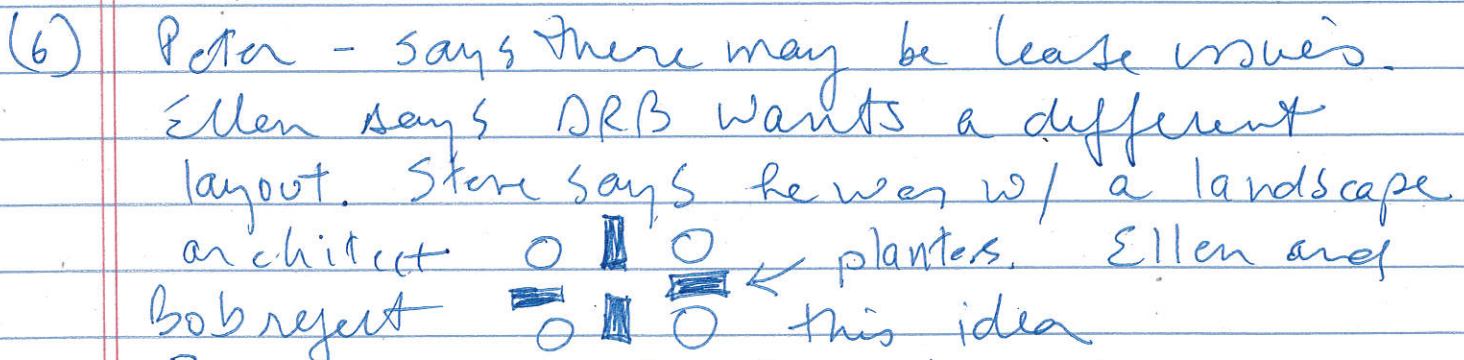 (6) Peter - says there may be lease issues.
Ellen says DRB wants a different
layout. Steve says he was w/ a landscape
architect planters. Ellen and
Bob reject this idea